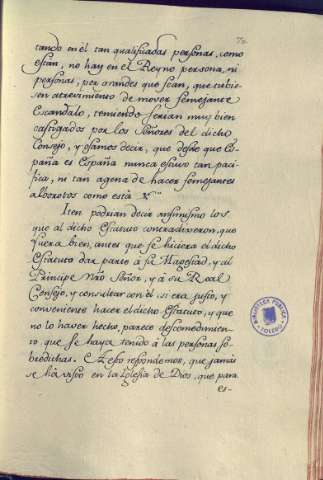 tando en él tan qualificadas personas, como
están, no hay en el Reyno persona, ni
personas, por grandes que sean, que tubie-
sen atrevimiento de mover semejante
escandalo, temiendo serian muy bien
castigados por los Señores del dicho
Consejo, y osamos decir, que desde que Es-
paña es España nunca estuvo tan paci-
fica, ni tan agena de hacer semejantes
alborotos como está
Iten podrian decir asimismo los
que al dicho Estatuto contradixeron, que
fuera bien, antes que se hiciera el dicho
Estatuto dar parte á su Magestad, y al
Principe nro Señor, y á su Real
Consejo, y consultar con él si era justo, y
conveniente hacer el dicho Estatuto, y que
no lo haver hecho, parece descomedimien-
to, que se haya tenido á las personas so-
bredichas. A esto respondemos, que jamás
se há visto en la Iglesia de Dios, que para
es-
BIBLIOTECA PUBLICA
TOLEDO